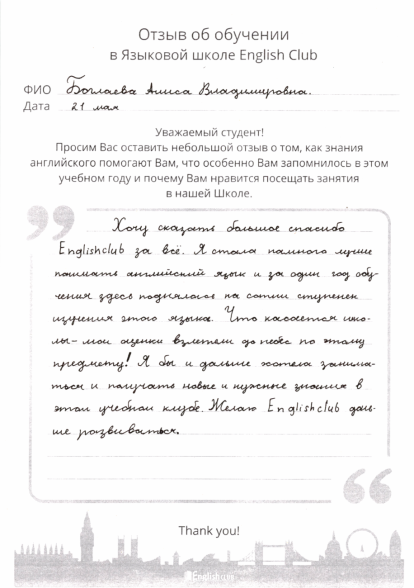 Отзыв об обучении
в Языковой школе English Club
ФИО Боглаева Алиса Владимировна.
Дата 21 мая
Уважаемый студент!
Просим Вас оставить небольшой отзыв о том, как знания
английского помогают Вам, что особенно Вам запомнилось в этом
учебном году и почему Вам нравится посещать занятия
в нашей Школе.
Хочу сказать большое спасибо
Englishclub за всё. Я стала намного лучше
понимать английский язык и за один год обу-
чения здесь поднялась на сотни ступенек
изучения этого языка. Что касается шко-
лы - мои оценки взлетели до небес по этому
предмету! Я бы и дальше хотела занима-
ться и получать новые и нужные знания в
этом учебном клубе. Желаю Englishclub даль-
ше развиваться.
Thank you!
English